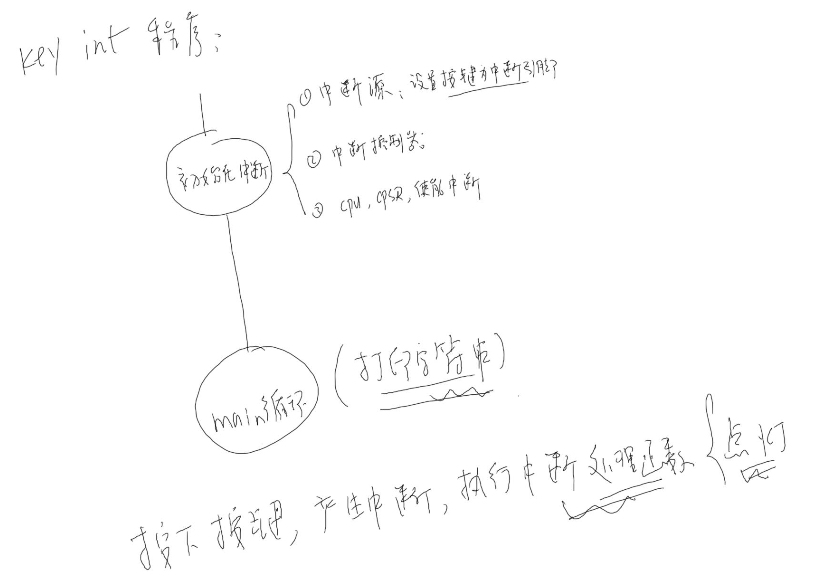 key int 程序:
① 中断源: 设置按键为中断引脚
初始化中断
② 中断控制器
③ cpu, CPSR, 使能中断
main循环 (打印字符串)
按下按键, 产生中断, 执行中断处理函数 { 点灯